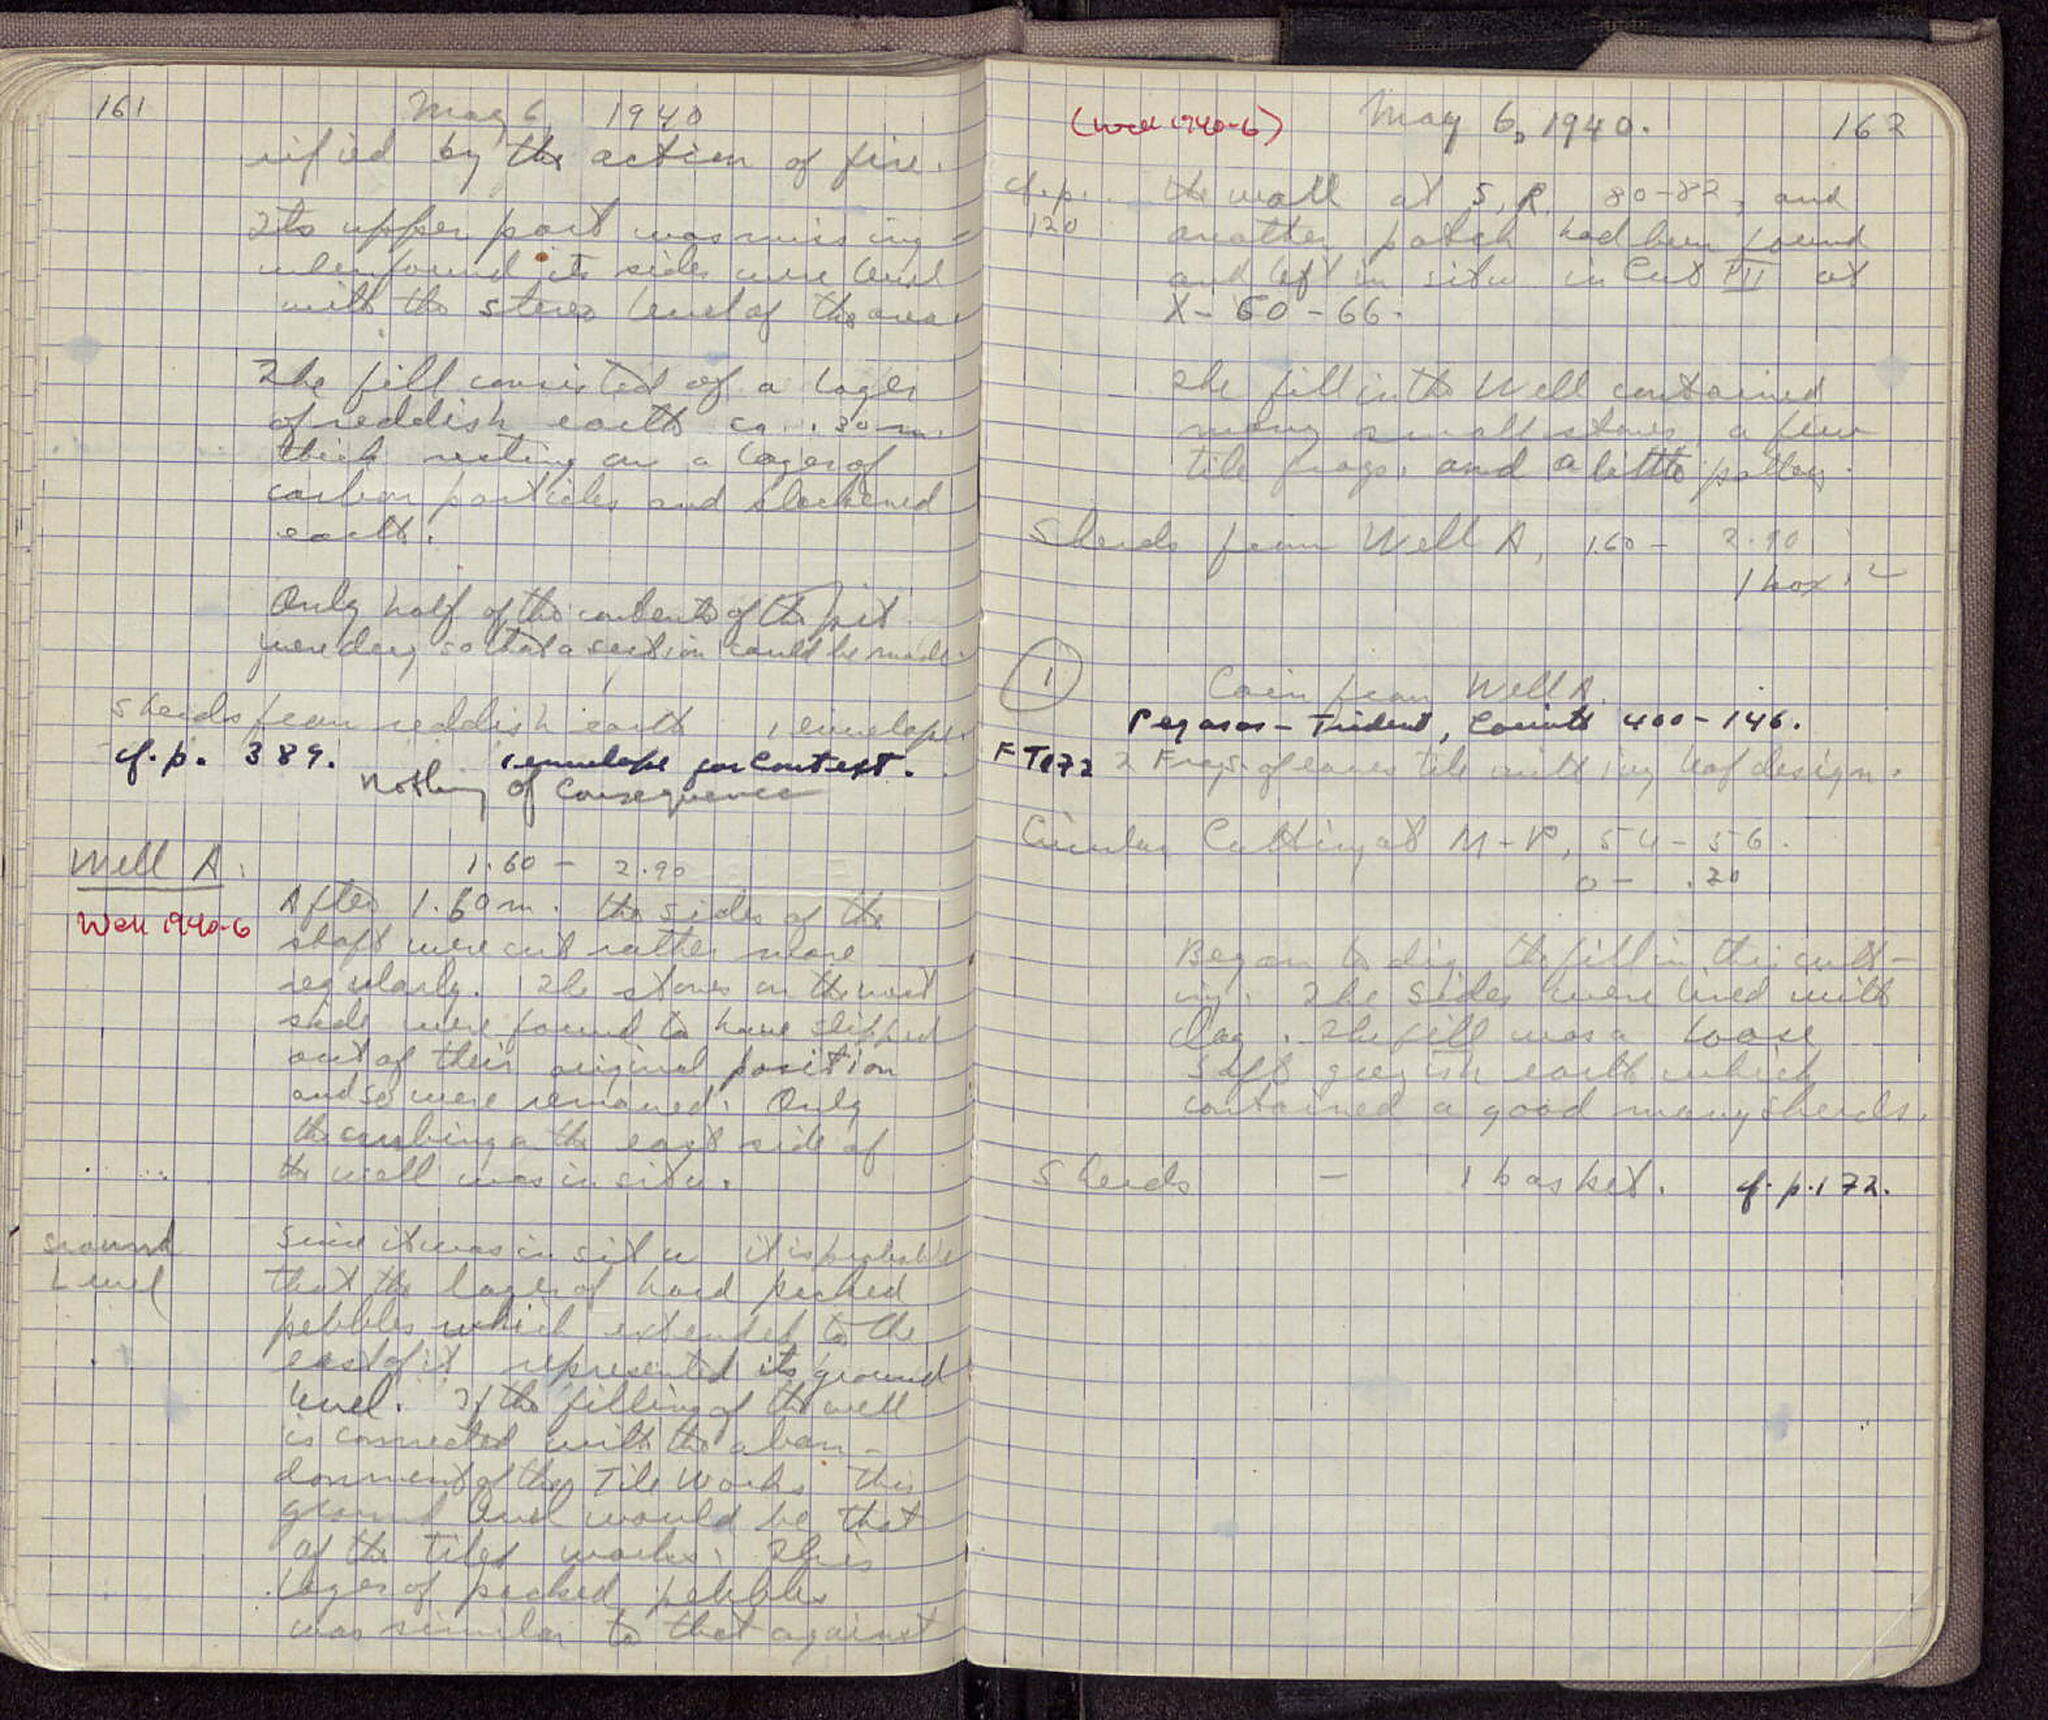 161 May 6 1940
rified by the action of fire.
Its upper part was missing -
when found its sides were level
with the stereo level of the area.
The fill consisted of a layer
of reddish earth ca. .30 m.
thick resting on a layer of
carbon particles and blackened
earth.
Only half of the contents of the pit
were dug so that a section could be made.
Sherds from reddish earth 1 envelope.
cf. p. 389. 1 envelope for Context.
Nothing of Consequence
Well A. 1.60 - 2.90
Well 1940-6
After 1.60 m. the sides of the
shaft were cut rather more
regularly. The stones on the west
side were found to have slipped
out of their original position
and so were removed. Only
the curbing on the east side of
the well was in situ.
Ground
Level
Since it was in situ it is probable
that the layer of hard packed
pebbles which extended to the
east of it represented its ground
level. If the filling of the well
is connected with the aban-
donment of the Tile Works this
ground level would be that
of the tile works. This
layer of packed pebbles
was similar to that against
(Well 1940-6) May 6, 1940. 162
cf. p.
120
the wall at S, R. 80-82, and
another patch had been found
and left in situ in Cut VII at
X - 60 - 66.
The fill in the Well contained
many small stones, a few
tile frags. and a little pottery.
Sherds from Well A, 1.60 - 2.90
1 box.
1
Coin from Well A.
Pegasos - Trident, Corinth 400-146.
FT 72 2 Frags. of eaves tile with ivy leaf design.
Circular Cutting at M-P, 54-56.
0 - .20
Began to dig the fill in this cutt-
ing. The sides were lined with
clay. The fill was a loose
soft greyish earth which
contained a good many sherds.
Sherds - 1 basket. cf. p. 172.